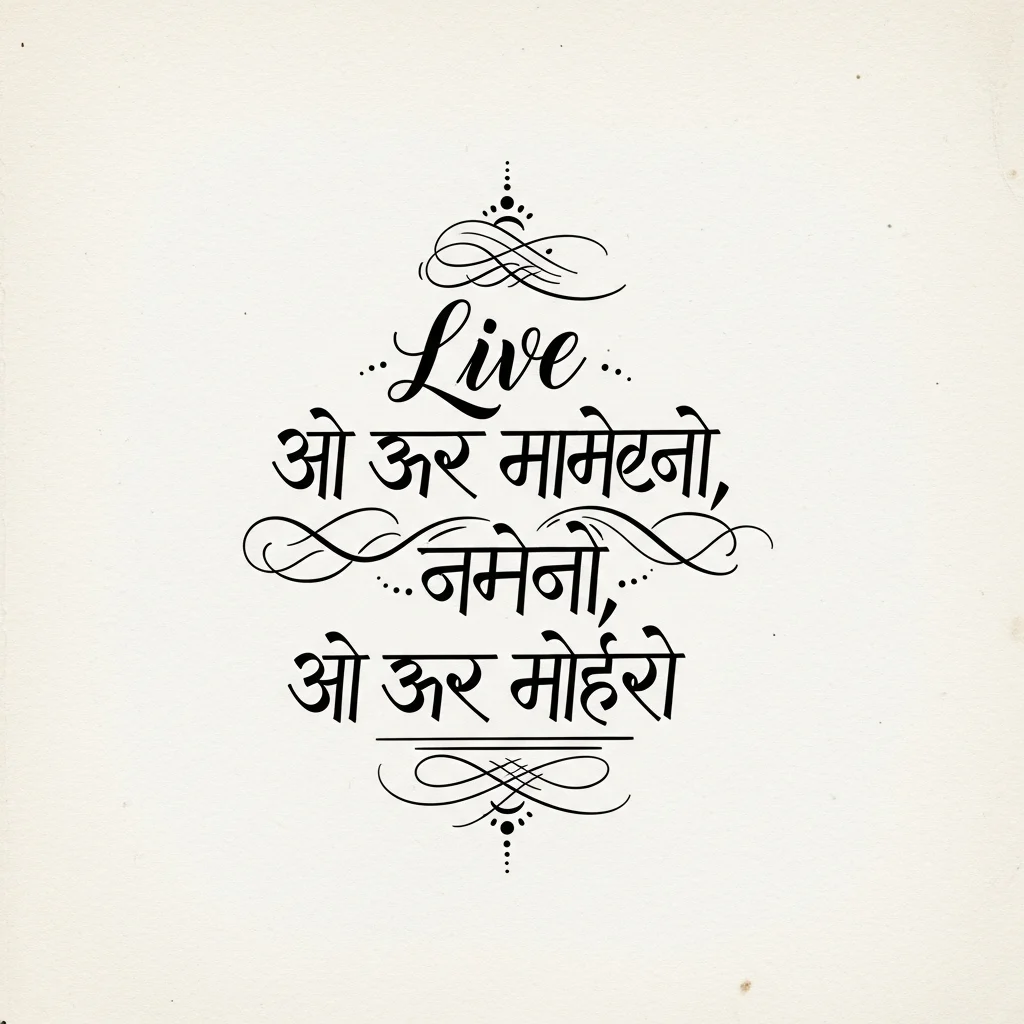 Live
ओ ऊर मामेटनो,
नमेनो,
ओ ऊर मोर्हरो